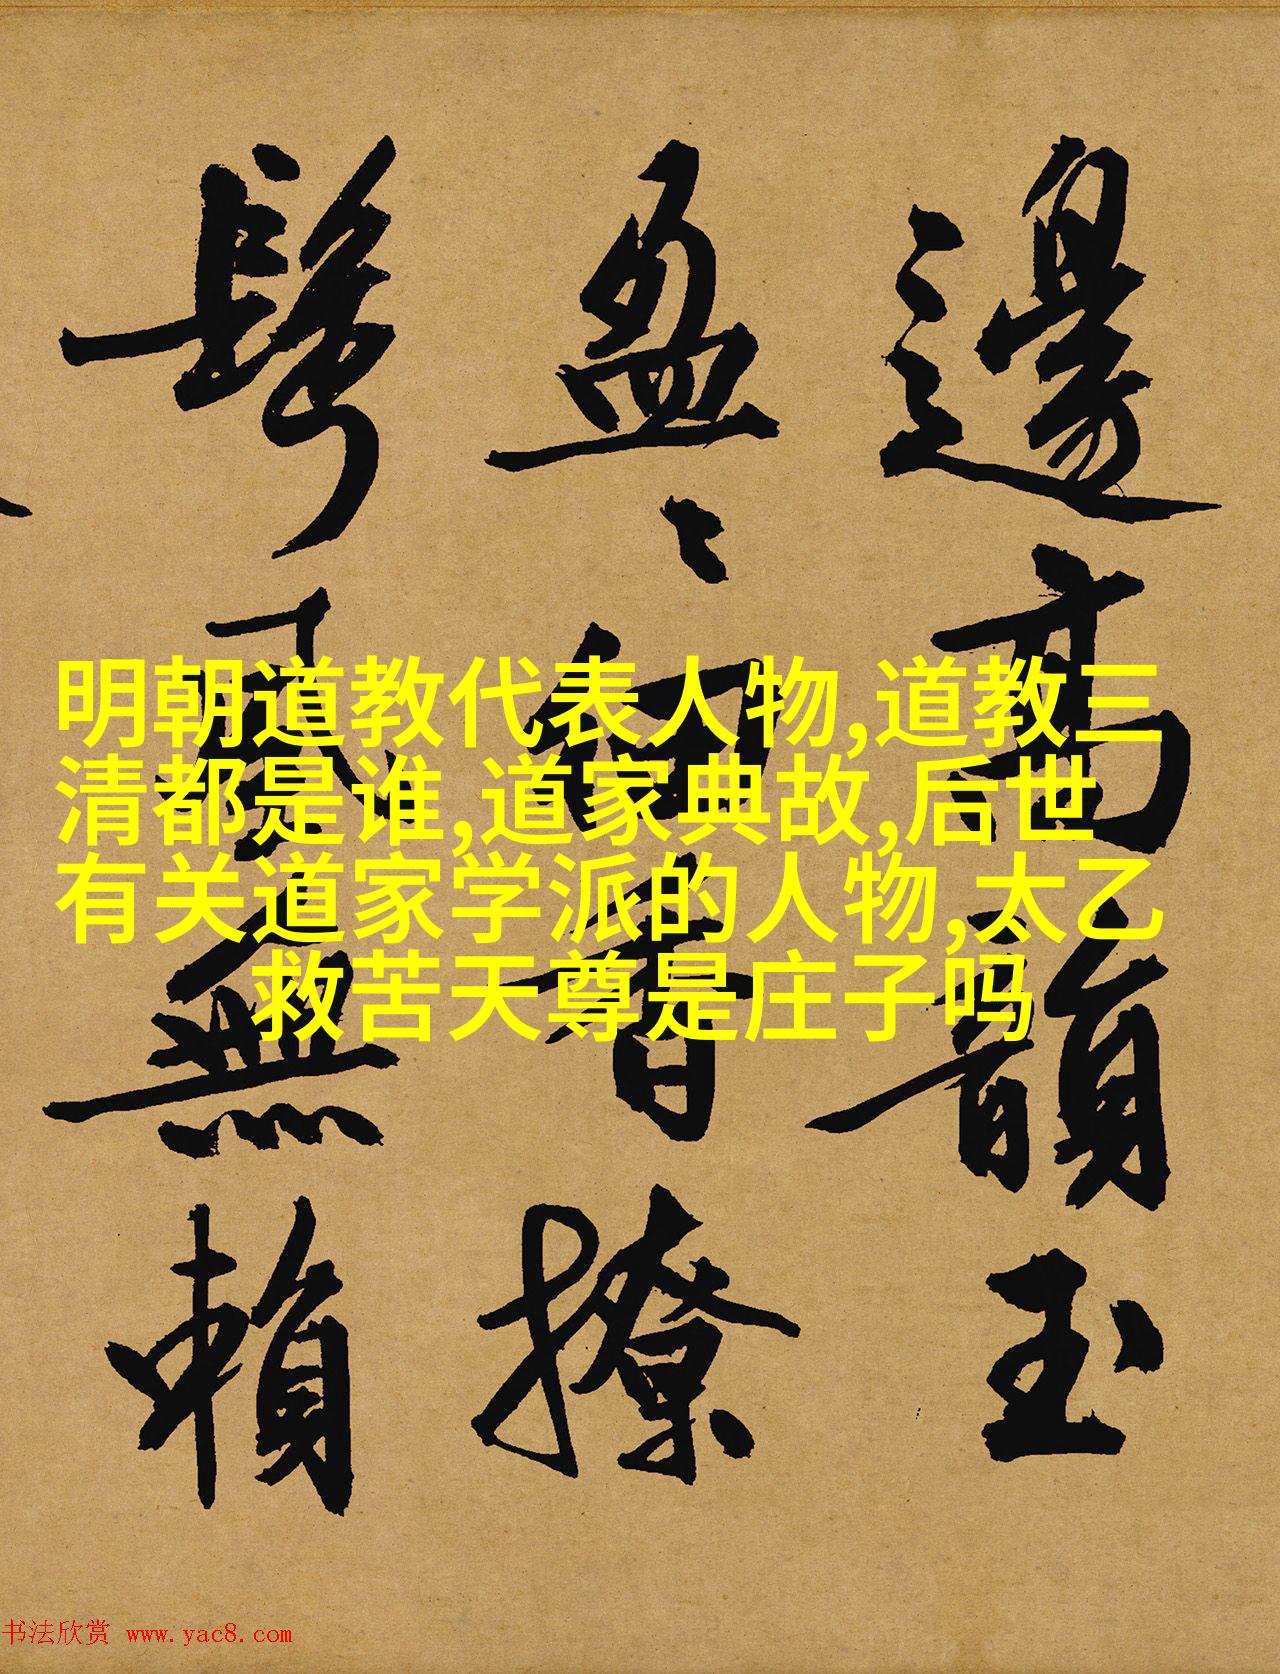 邊高韻玉
盈香撩
無賴
明朝道教代表人物,道教三
清都是谁,道家典故,后世
有关道家学派的人物,太乙
救苦天尊是庄子吗
书法欣赏 www.yac8.com